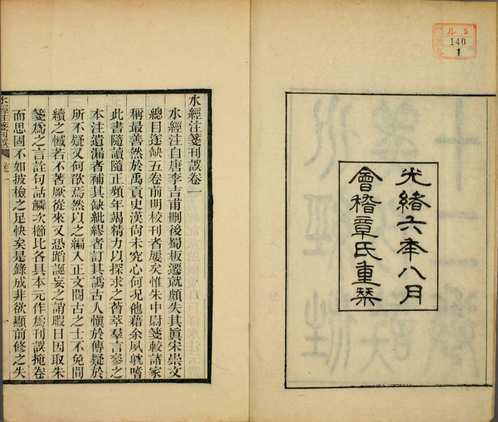 140
1
光緒六年八月
會稽章氏重栞
水經注箋刊誤卷一
水經注自唐李吉甫刪後蜀板遷就頗失其眞宋崇文
總目迄缺五卷前明校刊者屢矣惟朱中尉箋較諸家
稱最善然於禹貢史漢尙未究心何況他籍余夙嗜
此書隨讀隨正頻年竭精力以探求之薈萃羣言參之
本注遺漏者補其缺紕繆者訂其譌古人愼於傳疑於
所不疑又何歉焉然以之編入正文古之士不免
續之憾者不著厥從來又恐蹈誕妄之誚暇日因取朱
箋爲之言詮句詁鱗次櫛比各具本元作爲刊誤掩卷
而思固不如披檢之足快矣是錄成非欲顯前修之失